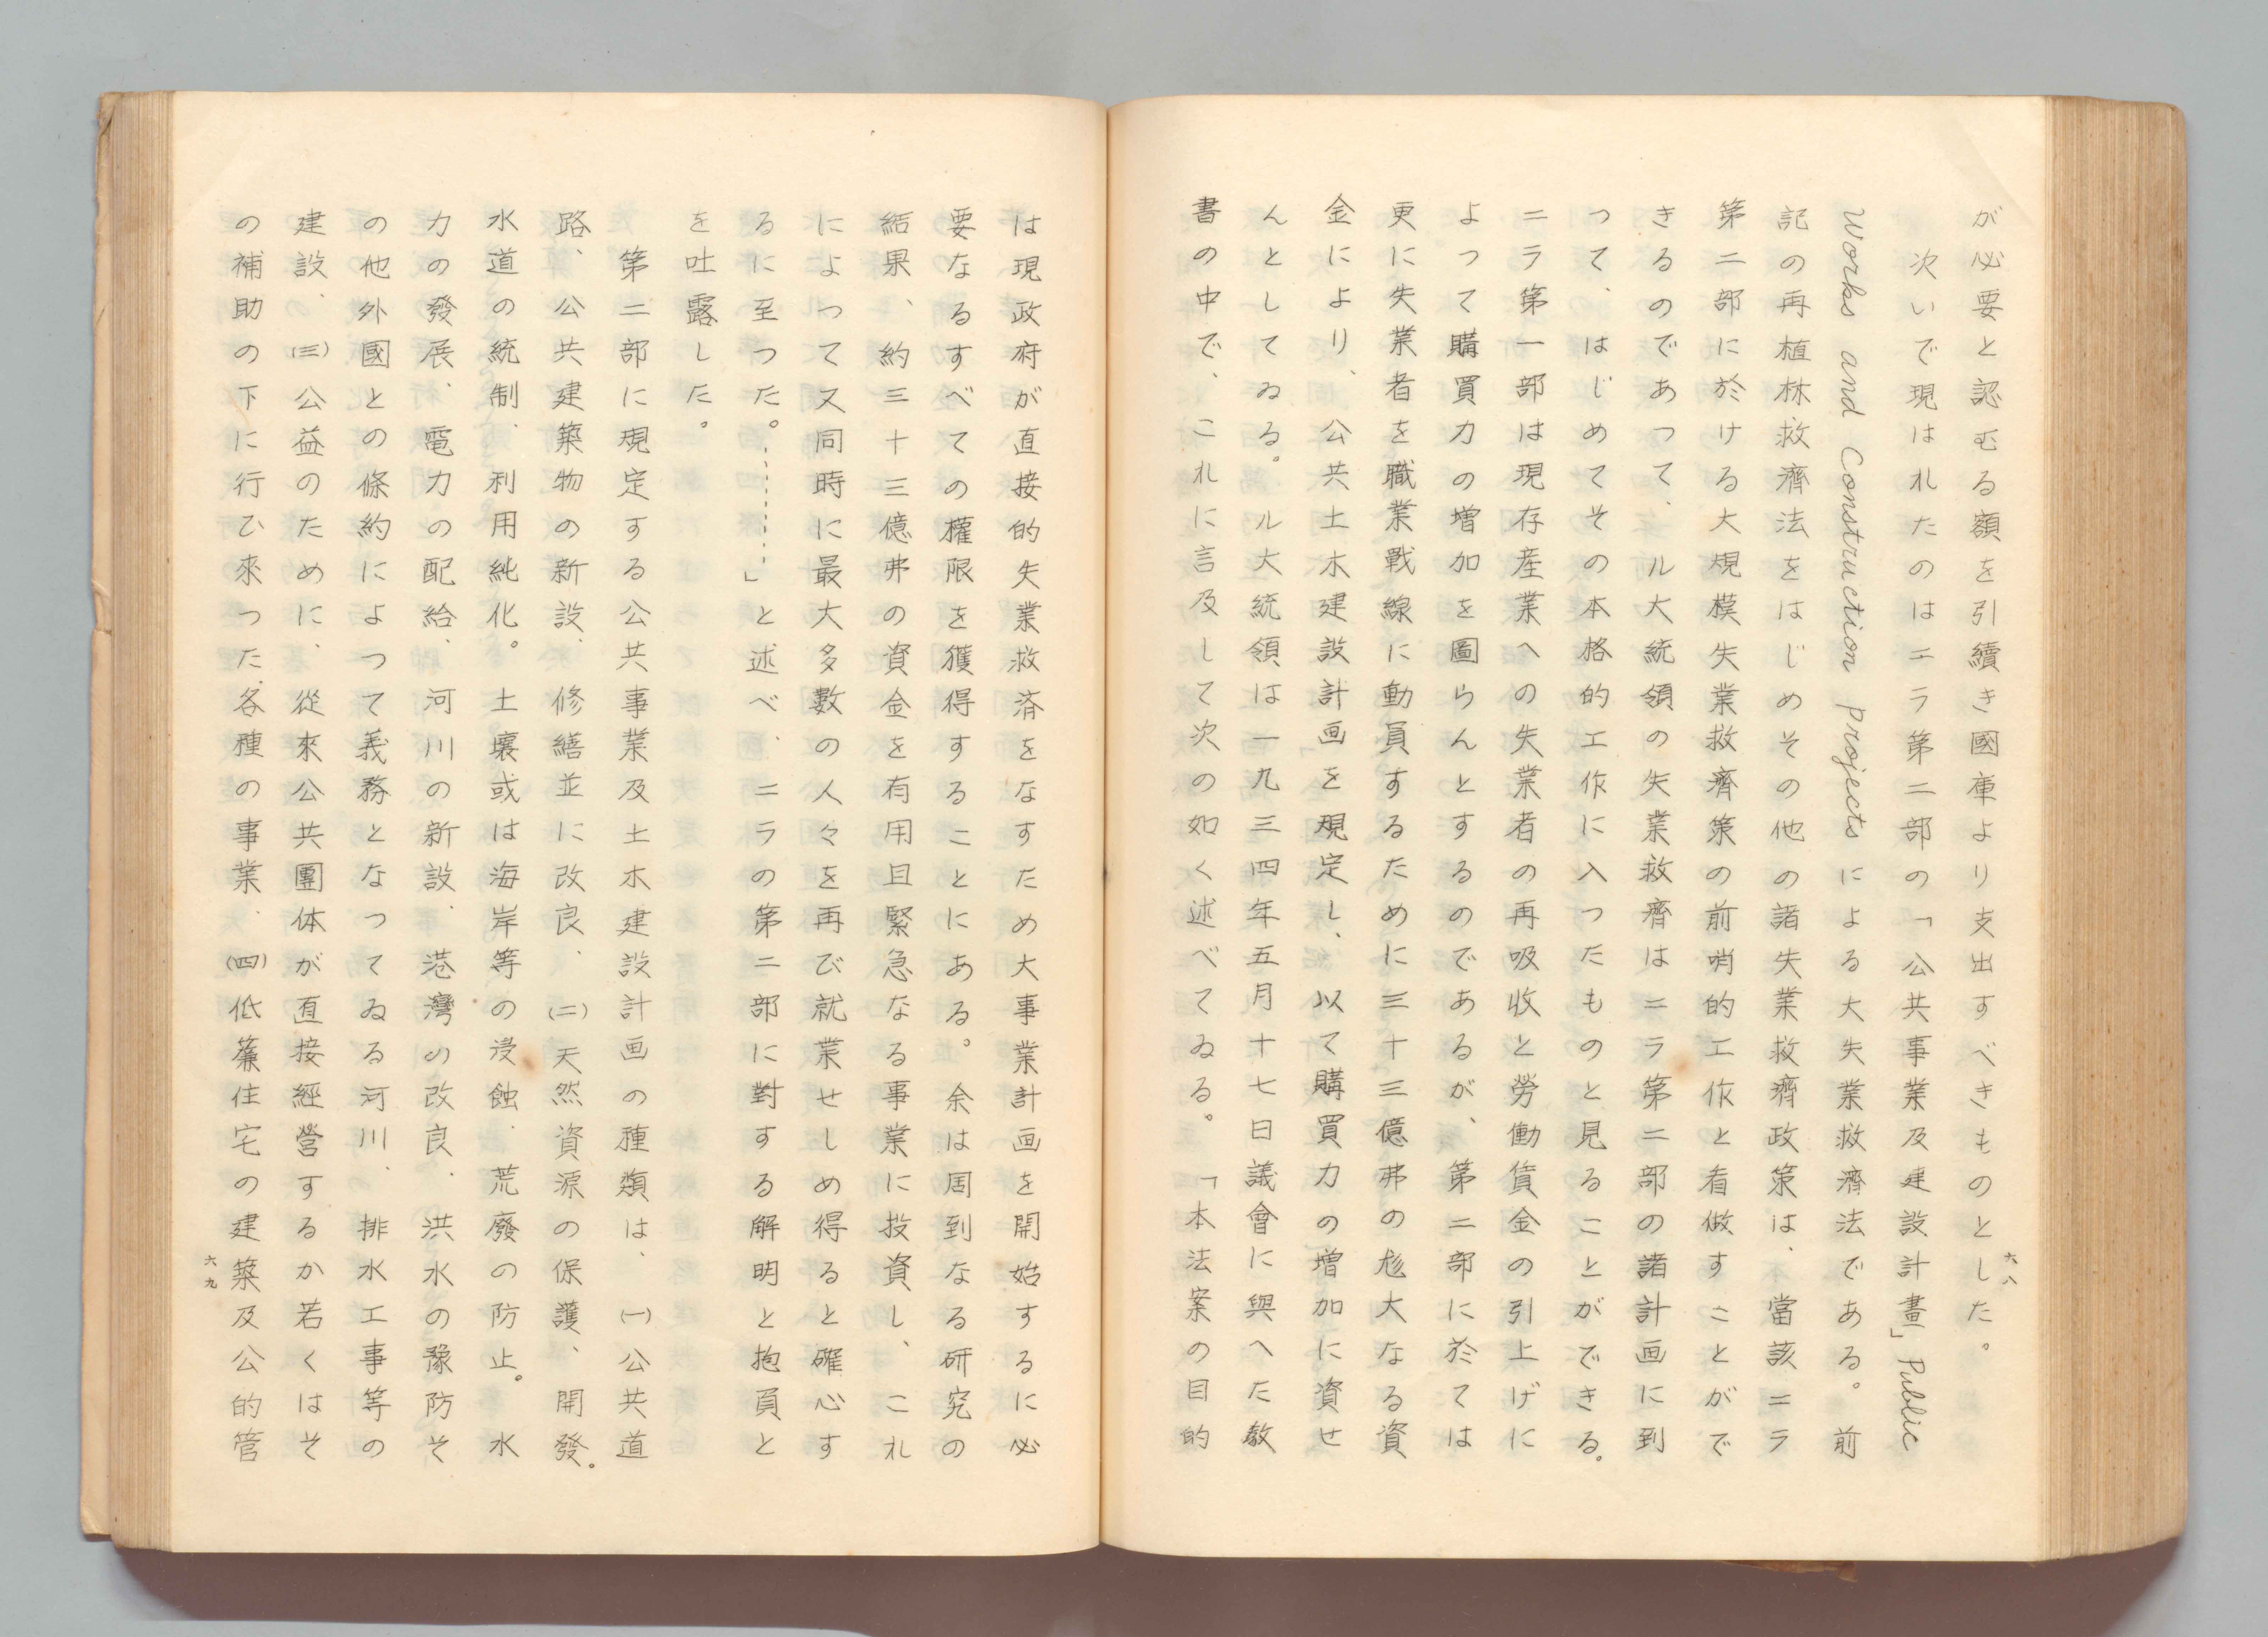 が必要と認むる額を引續き國庫より支出すべきものとした。
次いで現はれたのはニラ第二部の「公共事業及建設計畫」Public
Works and Construction Projects による大失業救濟法である。前
記の再植林救濟法をはじめその他の諸失業救濟政策は、當該ニラ
第二部に於ける大規模失業救濟策の前哨的工作と看做すことがで
きるのであつて、ル大統領の失業救濟はニラ第二部の諸計画に到
つて、はじめてその本格的工作に入つたものと見ることができる。
ニラ第一部は現存産業への失業者の再吸收と勞働賃金の引上げに
よつて購買力の増加を圖らんとするのであるが、第二部に於ては
更に失業者を職業戰線に動員するために三十三億弗の尨大なる資
金により、公共土木建設計画を規定し、以て購買力の増加に資せ
んとしてゐる。ル大統領は一九三四年五月十七日議會に與へた敎
書の中で、これに言及して次の如く述べてゐる。「本法案の目的
六八
は現政府が直接的失業救済をなすため大事業計画を開始するに必
要なるすべての權限を獲得することにある。余は周到なる研究の
結果、約三十三億弗の資金を有用且緊急なる事業に投資し、これ
によつて又同時に最大多數の人々を再び就業せしめ得ると確心す
るに至つた。………」と述べ、ニラの第二部に對する解明と抱負と
を吐露した。
第二部に規定する公共事業及土木建設計画の種類は、(一)公共道
路、公共建築物の新設、修繕並に改良、(二)天然資源の保護、開發。
水道の統制、利用純化。土壤或は海岸等の浸蝕、荒廢の防止。水
力の發展、電力の配給、河川の新設、港灣の改良、洪水の豫防そ
の他外國との條約によつて義務となつてゐる河川、排水工事等の
建設、(三)公益のために、從來公共團体が直接經營するか若くはそ
の補助の下に行ひ來つた各種の事業、(四)低簾住宅の建築及公的管
六九